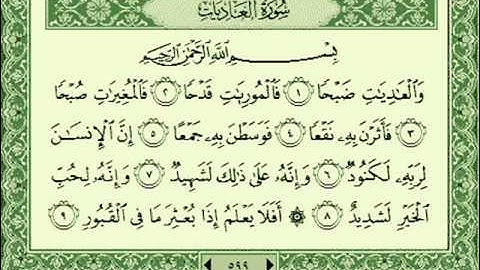 سُورَةُ العَادِيَاتِ
بِسْمِ اللَّهِ الرَّحْمَٰنِ الرَّحِيمِ
وَالْعَادِيَاتِ ضَبْحًا ١ فَالْمُورِيَاتِ قَدْحًا ٢ فَالْمُغِيرَاتِ صُبْحًا
٣ فَأَثَرْنَ بِهِ نَقْعًا ٤ فَوَسَطْنَ بِهِ جَمْعًا ٥ إِنَّ الْإِنسَانَ
لِرَبِّهِ لَكَنُودٌ ٦ وَإِنَّهُ عَلَىٰ ذَٰلِكَ لَشَهِيدٌ ٧ وَإِنَّهُ لِحُبِّ
الْخَيْرِ لَشَدِيدٌ ٨ ۞ أَفَلَا يَعْلَمُ إِذَا بُعْثِرَ مَا فِي الْقُبُورِ ٩
٥٩٩